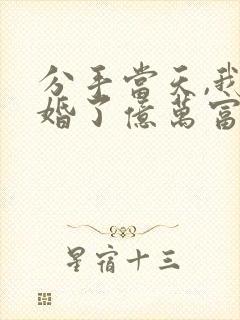 分手當天,我
婚了億萬富
星宿十三